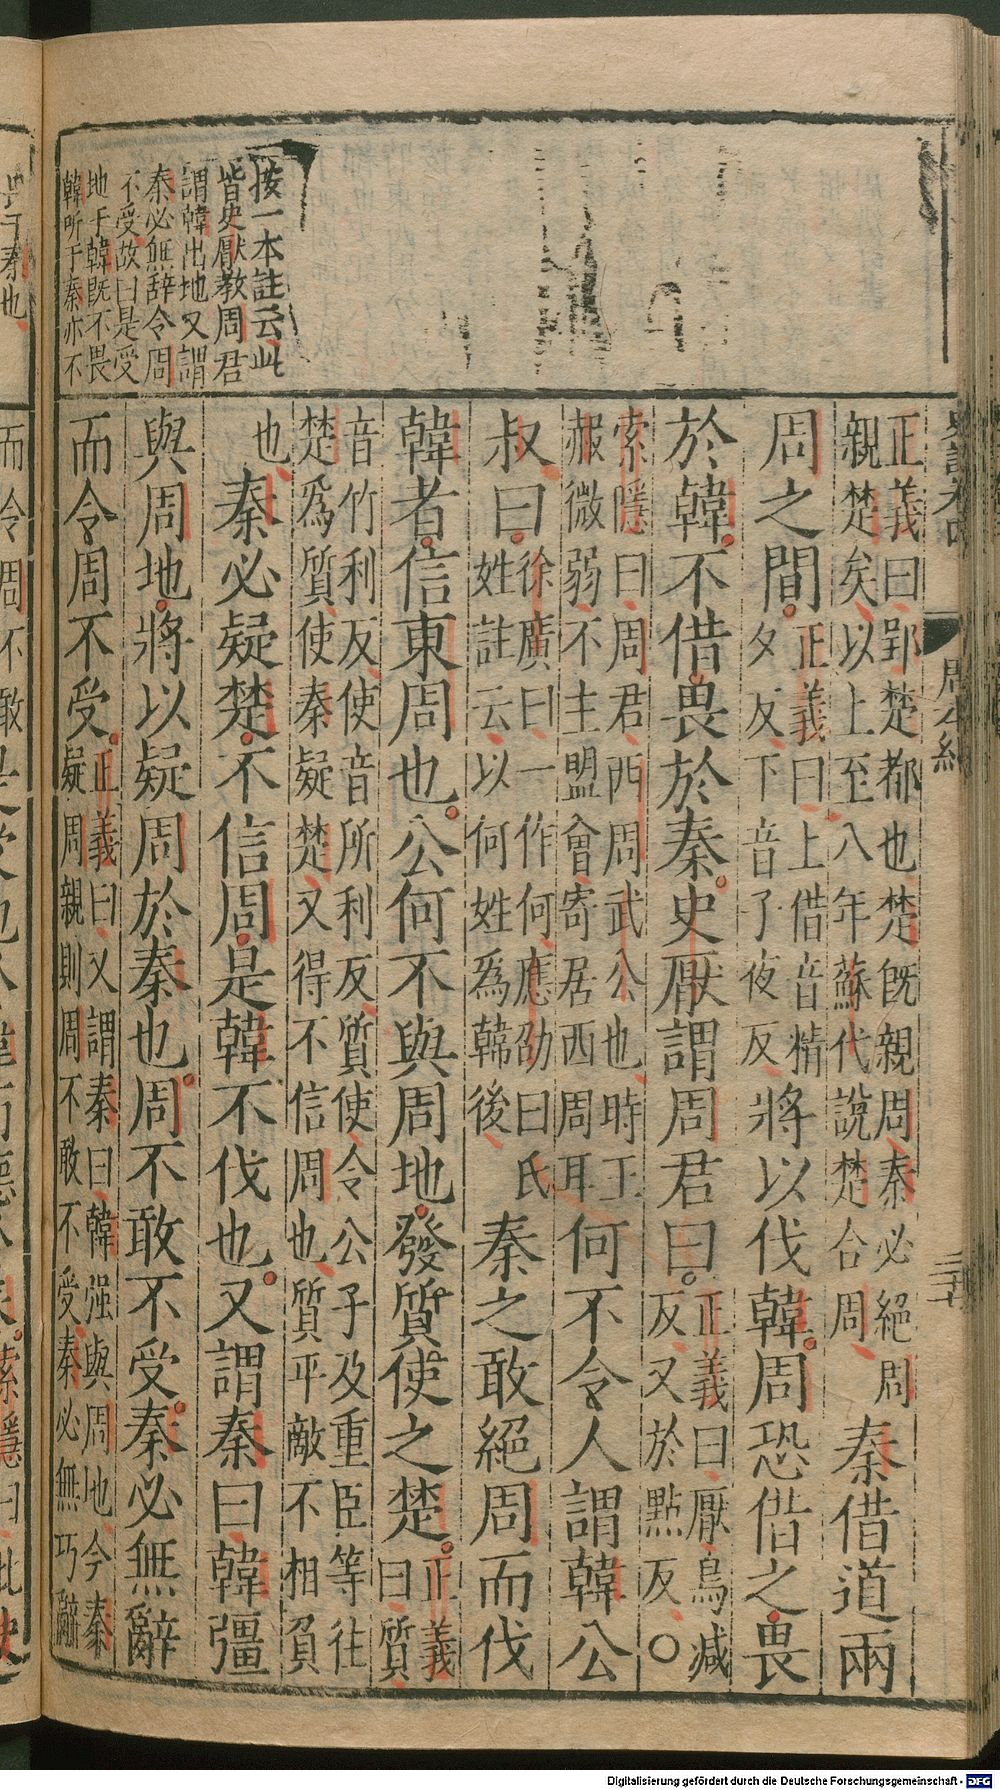 按一本註云此
皆史厭教周君
謂韓出地又謂
秦必無辞令周
不受故曰是受
地于韓既不畏
韓所于秦亦不
周本紀
正義曰郢楚都也楚既親周秦必絕周
親楚矣以上至八年蘇代說楚合周
秦借道兩
周之間
正義曰上借音精
夕反下音子夜反
將以伐韓周恐借之畏
於韓不借畏於秦史厭謂周君曰
正義曰厭烏減
反又於點反○
索隱曰周君西周武公也時王
赧微弱不主盟會寄居西周耳
何不令人謂韓公
叔曰
徐廣曰一作何應劭曰氏
姓註云以何姓爲韓後
秦之敢絕周而伐
韓者信東周也公何不與周地發質使之楚
正義
曰質
音竹利反使音所利反質使令公子及重臣等往
楚爲質使秦疑楚又得不信周也質平敵不相負
也
秦必疑楚不信周是韓不伐也又謂秦曰韓彊
與周地將以疑周於秦也周不敢不受秦必無辭
而令周不受
正義曰又謂秦曰韓强與周地今秦
疑周親則周不敢不受秦必無巧辭
Digitalisierung gefördert durch die Deutsche Forschungsgemeinschaft - DFG